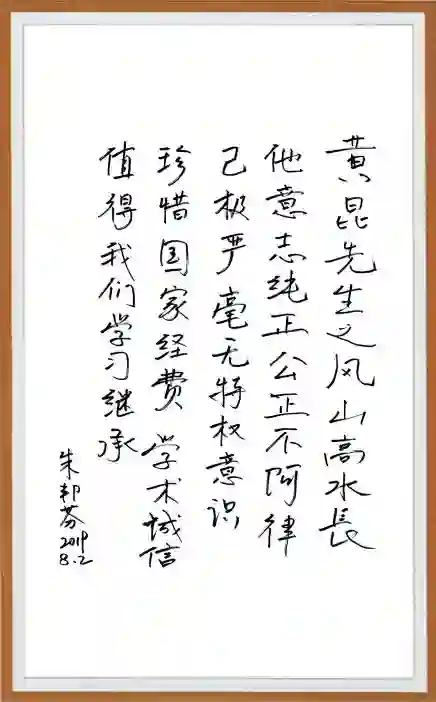 黄昆先生之风山高水長
他意志纯正公正不阿律
己极严毫无特权意识
珍惜国家经费 学术诚信
值得我们学习继承
朱邦芬
2019
8.2